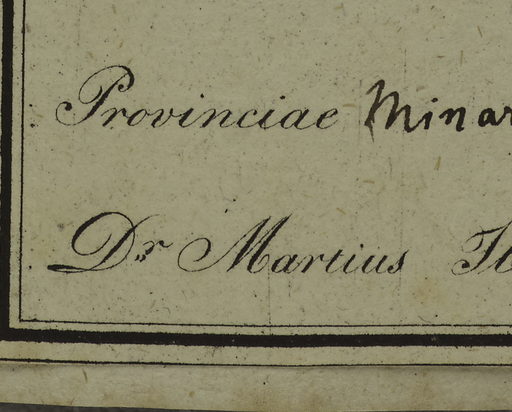 Provinciae Minar
Dr Martius It